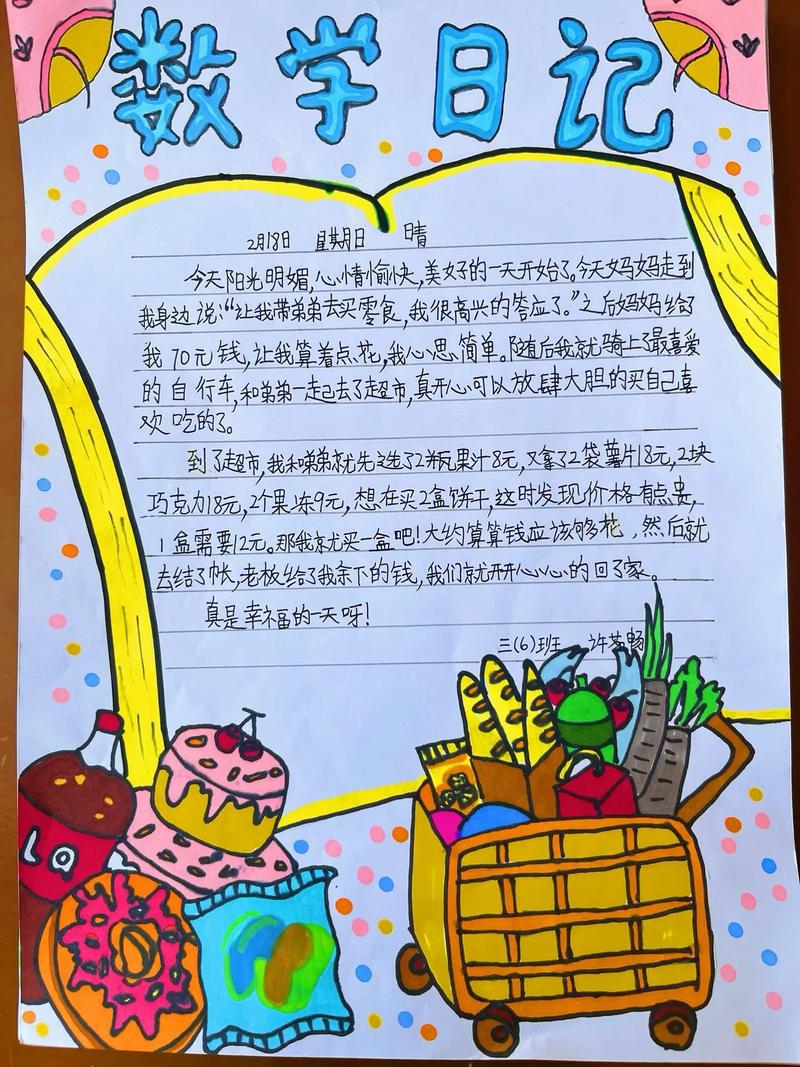 数学日记
2月18日 星期日 晴
今天阳光明媚,心情愉快,美好的一天开始了。今天妈妈走到
我身边说:“让我带弟弟去买零食,我很高兴的答应了。”之后妈妈给
我70元钱,让我算着点花,我心思简单。随后我就骑上了最喜爱
的自行车,和弟弟一起去了超市,真开心可以放肆大胆的买自己喜
欢吃的了。
到了超市,我和弟弟就先选了2瓶果汁8元,又拿了2袋薯片18元,2块
巧克力18元,2个果冻9元,想在买2盒饼干,这时发现价格有点贵,
1盒需要12元。那我就买一盒吧!大约算算钱应该够花,然后就
去结了帐,老板给了我余下的钱,我们就开开心心的回了家。
真是幸福的一天呀!
三(6)班 许 畅
LA